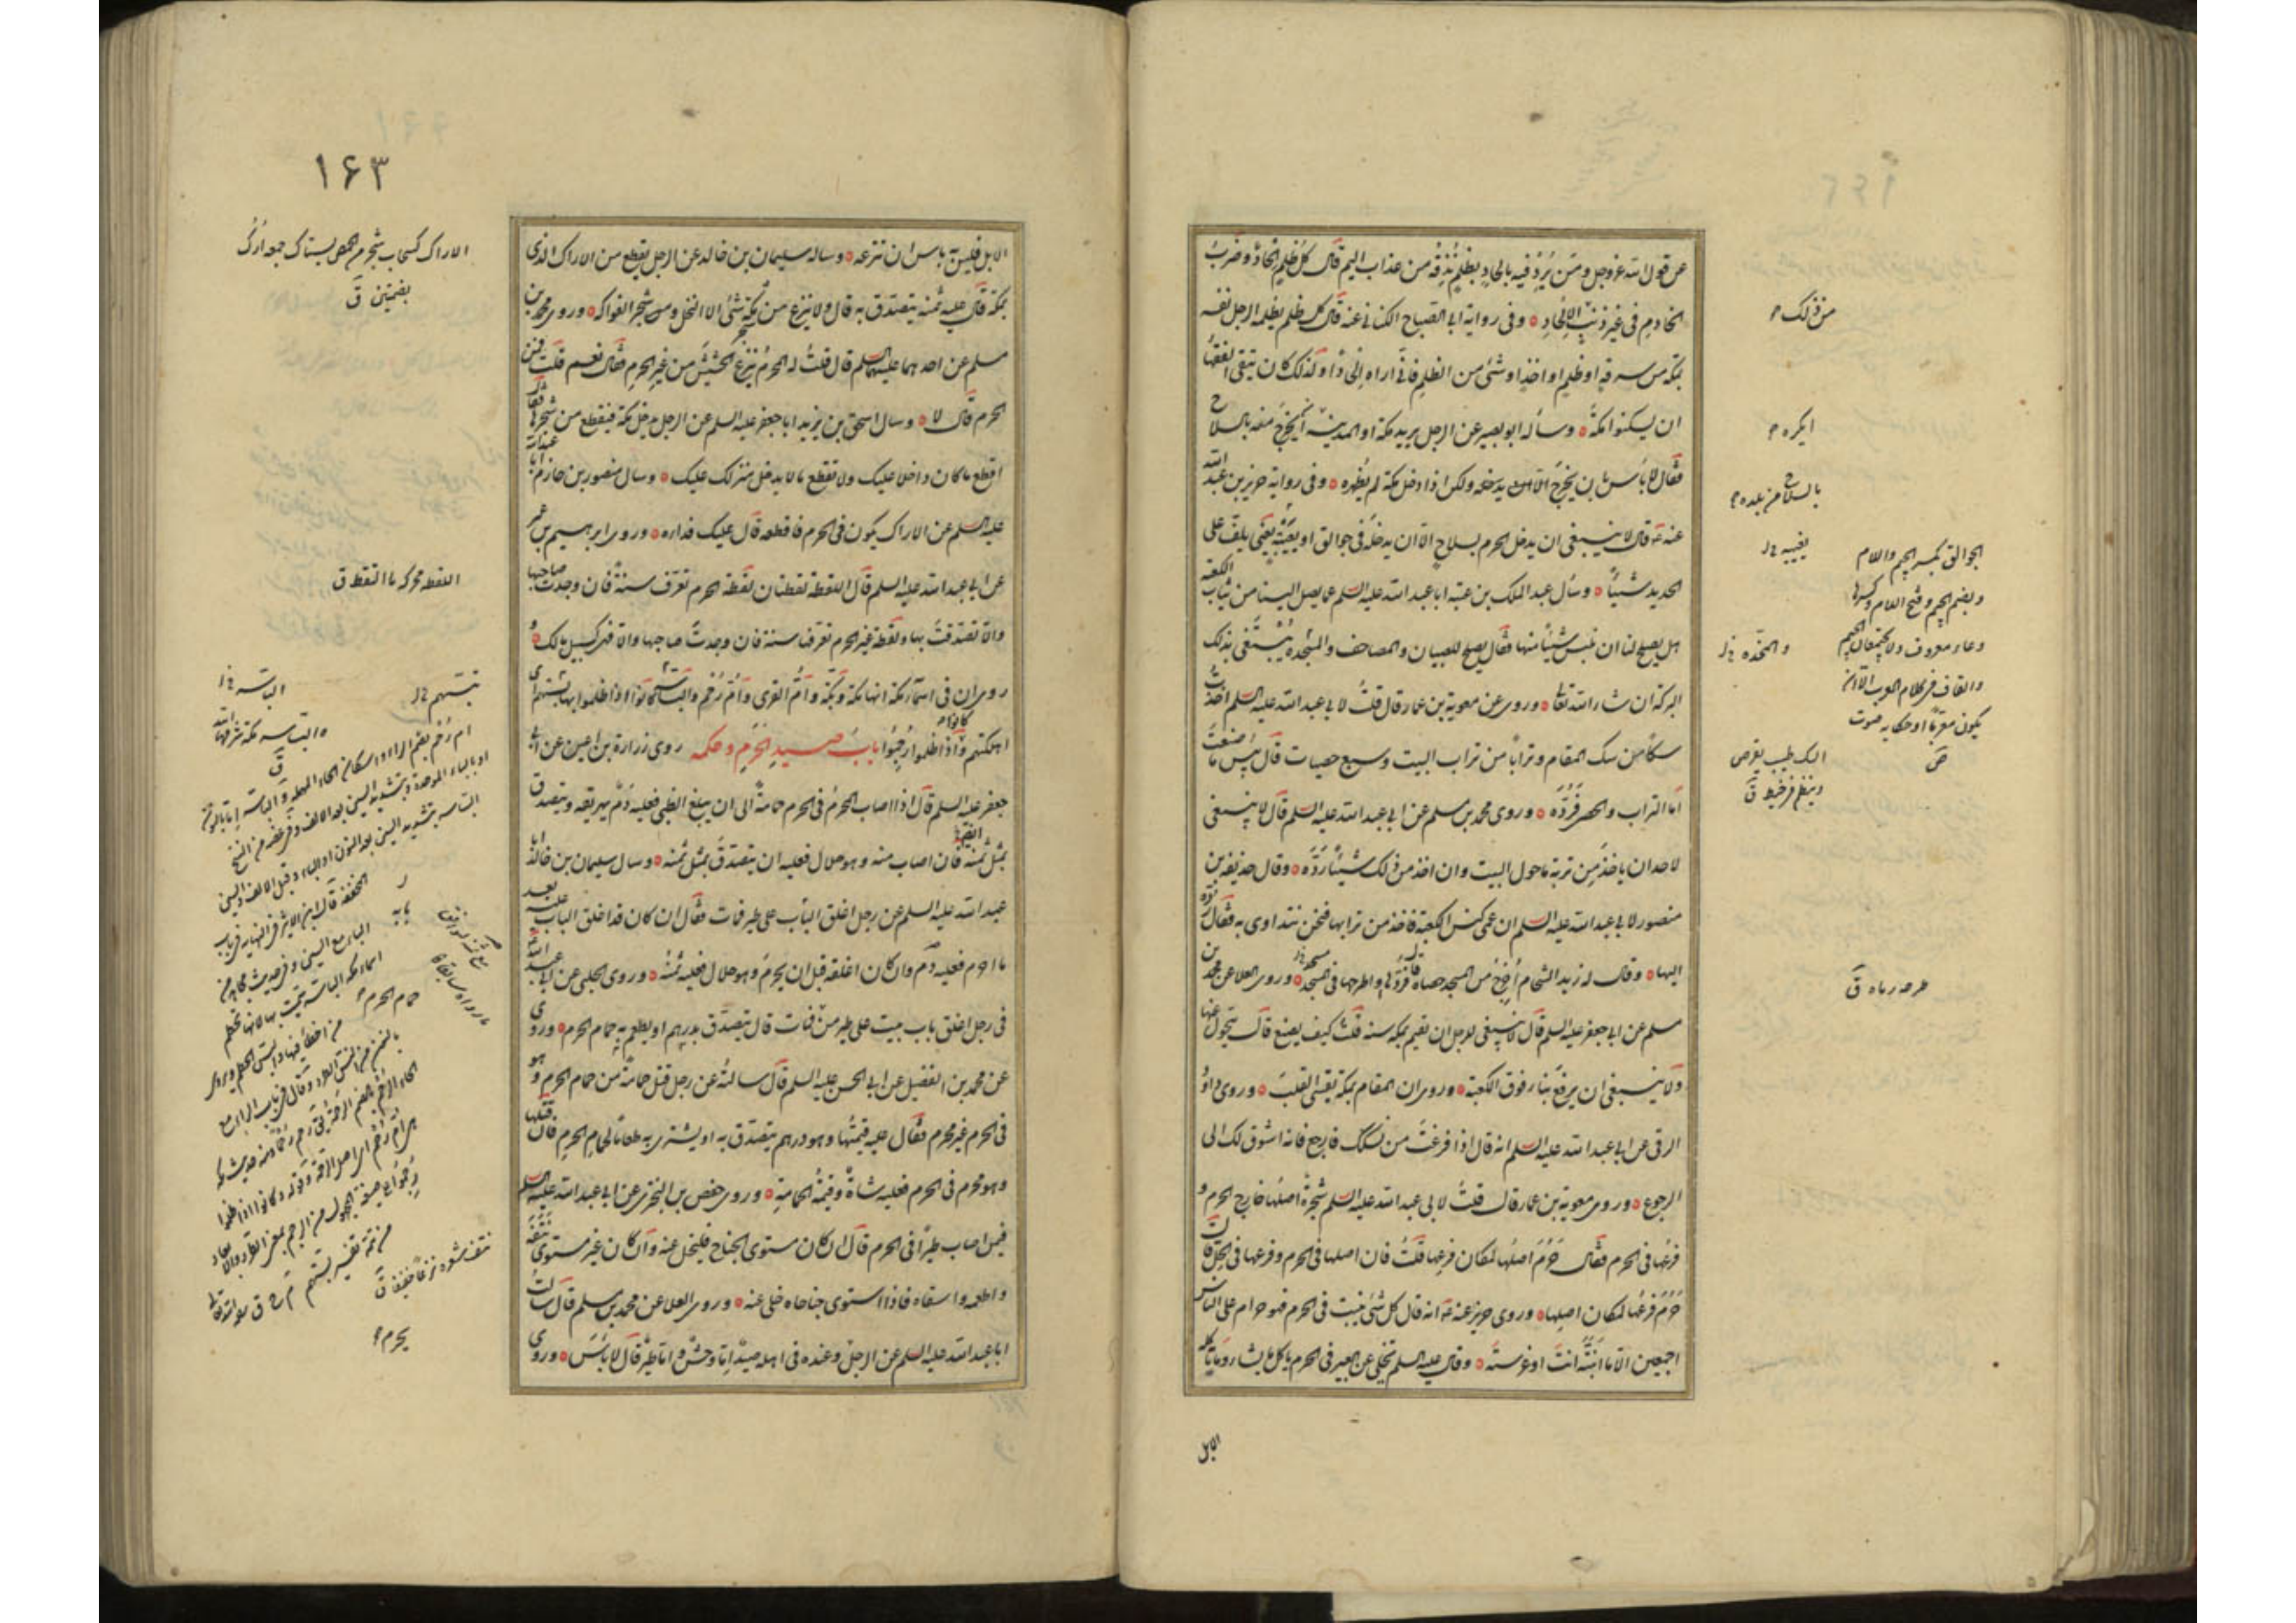 عن قول الله عز وجل ومن يرد فيه بالحاد بظلم نذقه من عذاب اليم قال كل ظلم الحاد وضرب
الخادم في غير ذنب من الالحاد ٥ وفي رواية ابي الصباح الكناني عنه قال كل ظلم يظلمه الرجل نفسه
بمكة من سرقة او ظلم احد او شئ من الظلم فاني اراه الحادا ولذلك كان يتقي الفقهاء
ان يسكنوا مكة ٥ وسأله ابو بصير عن الرجل يريد مكة او المدينة ايخرج معه بالسلاح
فقال لا بأس بان يخرج بالسلاح من بلده ولكن اذا دخل مكة لم يظهره ٥ وفي رواية حريز بن عبد الله
عنه ع قال لا ينبغي ان يدخل الحرم بسلاح الا ان يدخله في جوالق او يغيبه يعني يلف على
الحديد شيئا ٥ وسأل عبد الملك بن عتبة ابا عبد الله عليه السلم عما يصل الينا من ثياب الكعبة
هل يصلح لنا ان نلبس شيئا منها فقال يصلح للصبيان والمصاحف والمخده يبتغى بذلك
البركة ان شاء الله تعالى ٥ وروي عن معوية بن عمار قال قلت لابي عبد الله عليه السلم اخذت
سكا من سك المقام وترابا من تراب البيت وسبع حصيات قال بئس ما صنعت
اما التراب والحصى فرده ٥ وروى محمد بن مسلم عن ابي عبد الله عليه السلم قال لا ينبغي
لاحد ان ياخذ من تربة ما حول البيت وان اخذ من ذلك شيئا رده ٥ وقال حذيفة بن
منصور لابي عبد الله عليه السلم ان عمي كنس الكعبة فاخذ من ترابها فنحن نتداوى به فقال رده
اليها ٥ وقال له زيد الشحام اخرج من المسجد حصاة قال فردها او اطرحها في المسجد ٥ وروى العلا عن محمد بن
مسلم عن ابي جعفر عليه السلم قال لا ينبغي للرجل ان يقيم بمكة سنة قلت كيف يصنع قال يتحول عنها
ولا ينبغي ان يرفع بناء فوق الكعبة ٥ وروي ان المقام بمكة يقسي القلب ٥ وروى داود
الرقي عن ابي عبد الله عليه السلم انه قال اذا فرغت من نسكك فارجع فانه اشوق لك الى
الرجوع ٥ وروى معوية بن عمار قال قلت لابي عبد الله عليه السلم شجرة اصلها خارج الحرم و
فرعها في الحرم فقال حرم اصلها لمكان فرعها قلت فان اصلها في الحرم وفرعها في الحل قال
حرم فرعها لمكان اصلها ٥ وروى حريز عنه ع انه قال كل شئ ينبت في الحرم فهو حرام على الناس
اجمعين الا ما انبته انت او غرسته ٥ وقال عليه السلم تخلى عن البعير في الحرم ياكل ما شاء وما تاكله
الابل
من ذلك
ايكره
بالسلاح من بلده
يغيبه
والمخده
الجوالق بكسر الجيم واللام
وبضم الجيم وفتح اللام وكسرها
وعاء معروف ولا يجتمعان الجيم
والقاف في كلام العرب الا ان
يكون معربا او حكاية صوت
ص
السك طيب يقرص
وينظم في خيط ق
طرحه رماه ق
١٦٣
الابل فليس به باس ان تنزعه ٥ وساله سليمان بن خالد عن الرجل يقطع من الاراك الذي
بمكة قال عليه ثمنه يتصدق به قال ولا ينزع من شجر مكة شئ الا النخل وشجر الفواكه ٥ وروى محمد بن
مسلم عن احدهما عليهما السلم قال قلت له المحرم ينزع الحشيش من غير الحرم فقال نعم قلت فمن
الحرم قال لا ٥ وسال اسحق بن يزيد ابا جعفر عليه السلم عن الرجل يدخل مكة فيقطع من شجرها فقال
اقطع ما كان داخلا عليك ولا تقطع ما لا يدخل منزلك عليك ٥ وسال منصور بن حازم ابا عبد الله
عليه السلم عن الاراك يكون في الحرم فاقطعه قال عليك فداره ٥ وروى ابرهيم بن عمر
عن ابي عبد الله عليه السلم قال اللقطة لقطتان لقطة الحرم تعرف سنة فان وجدت صاحبها
والا تصدقت بها ولقطة غير الحرم تعرف سنة فان وجدت صاحبها والا فهي كسبيل مالك ٥ و
روي ان في اسماء مكة انها مكة وبكة وام القرى وام رحم والباسة كانوا اذا ظلموا بها بستهم اي
اهلكتهم وكانوا اذا ظلموا رحموا باب صيد الحرم وحكمه روى زرارة بن اعين عن ابي
جعفر عليه السلم قال اذا اصاب المحرم في الحرم حمامة الى ان يبلغ الظبي فعليه دم يهريقه ويتصدق
بمثل ثمنه فان اصاب منه وهو حلال فعليه ان يتصدق بمثل ثمنه ٥ وسال سليمان بن خالد ابا
عبد الله عليه السلم عن رجل اغلق الباب على طير فمات فقال ان كان قد اغلق الباب عليه بعد
ما احرم فعليه دم وان كان اغلقه قبل ان يحرم وهو حلال فعليه ثمنه ٥ وروى الحلبي عن ابي عبد الله
في رجل اغلق باب بيت على طير من فمات قال يتصدق بدرهم او يطعم به حمام الحرم ٥ وروي
عن محمد بن الفضيل عن ابي الحسن عليه السلم قال سالته عن رجل قتل حمامة من حمام الحرم وهو
في الحرم غير محرم فقال عليه قيمتها وهو درهم يتصدق به او يشتري به طعاما لحمام الحرم فان قتلها
وهو محرم في الحرم فعليه شاة وقيمة الحمامة ٥ وروى حفص بن البختري عن ابي عبد الله عليه السلم
فيمن اصاب طيرا في الحرم قال ان كان مستوي الجناح فليخل عنه وان كان غير مستوي نتفه
واطعمه واسقاه فاذا استوى جناحاه خلى عنه ٥ وروى العلا عن محمد بن مسلم قال سالت
ابا عبد الله عليه السلم عن الرجل وعنده في اهله صيد اما وحش واما طير قال لا باس ٥ وروى
الاراك كسحاب شجر من الحمض يستاك به جمعه ارك
بضمتين ق
اللقطه محركه ما التقط ق
تبسهم
الباسه
حمام الحرم
نتف شعره نزعه ق
يحرم